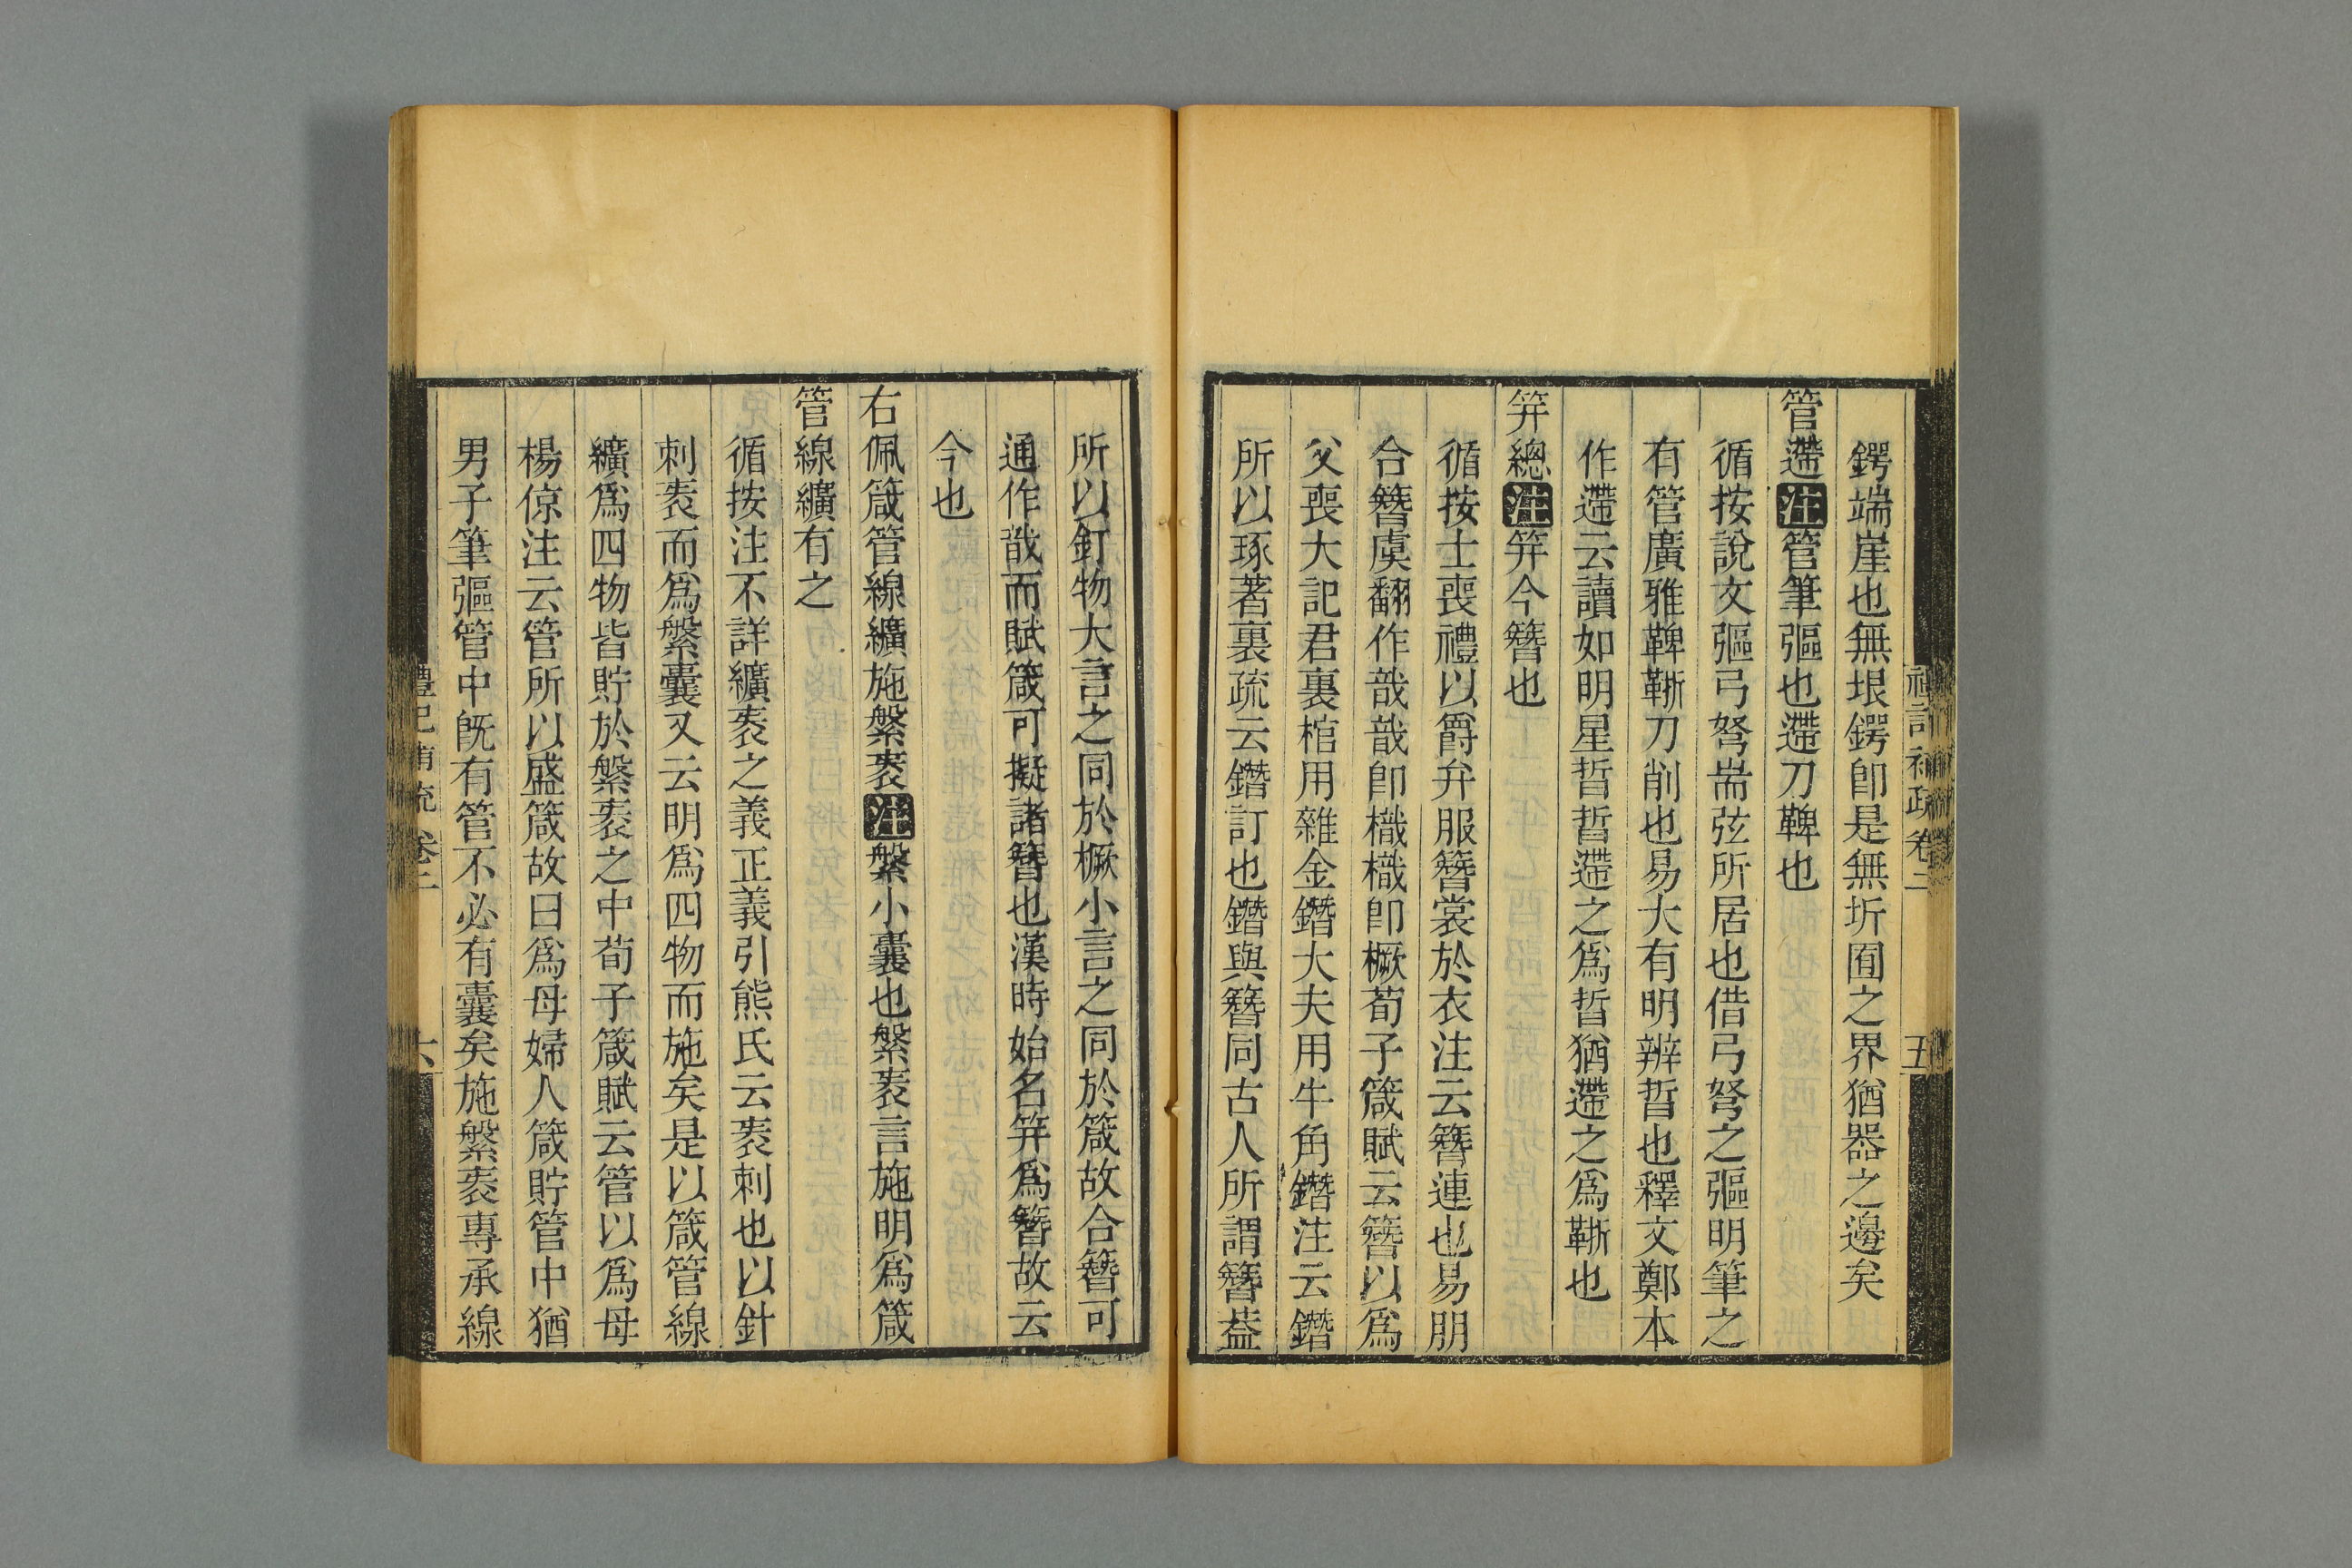 鍔端崖也無垠鍔卽是無圻囿之界猶器之邊矣
管遰注管筆彄也遰刀鞞也
循按說文彄弓弩耑弦所居也借弓弩之彄明筆之
有管廣雅鞞䩢刀削也易大有明辨晢也釋文鄭本
作遰云讀如明星晢晢遰之爲晢猶遰之爲䩢也
笄總注笄今簪也
循按士喪禮以爵弁服簪裳於衣注云簪連也易朋
合簪虞翻作戠戠卽樴樴卽橛荀子箴賦云簪以爲
父喪大記君裏棺用雜金鐕大夫用牛角鐕注云鐕
所以琢著裏疏云鐕訂也鐕與簪同古人所謂簪葢
禮記補疏卷二
五
所以釘物大言之同於橛小言之同於箴故合簪可
通作戠而賦箴可擬諸簪也漢時始名笄爲簪故云
今也
右佩箴管線纊施縏袠注縏小囊也縏袠言施明爲箴
管線纊有之
循按注不詳纊袠之義正義引熊氏云袠刺也以針
刺袠而爲縏囊又云明爲四物而施矣是以箴管線
纊爲四物皆貯於縏袠之中荀子箴賦云管以爲母
楊倞注云管所以盛箴故曰爲母婦人箴貯管中猶
男子筆彄管中旣有管不必有囊矣施縏袠專承線
禮記補疏卷二
六